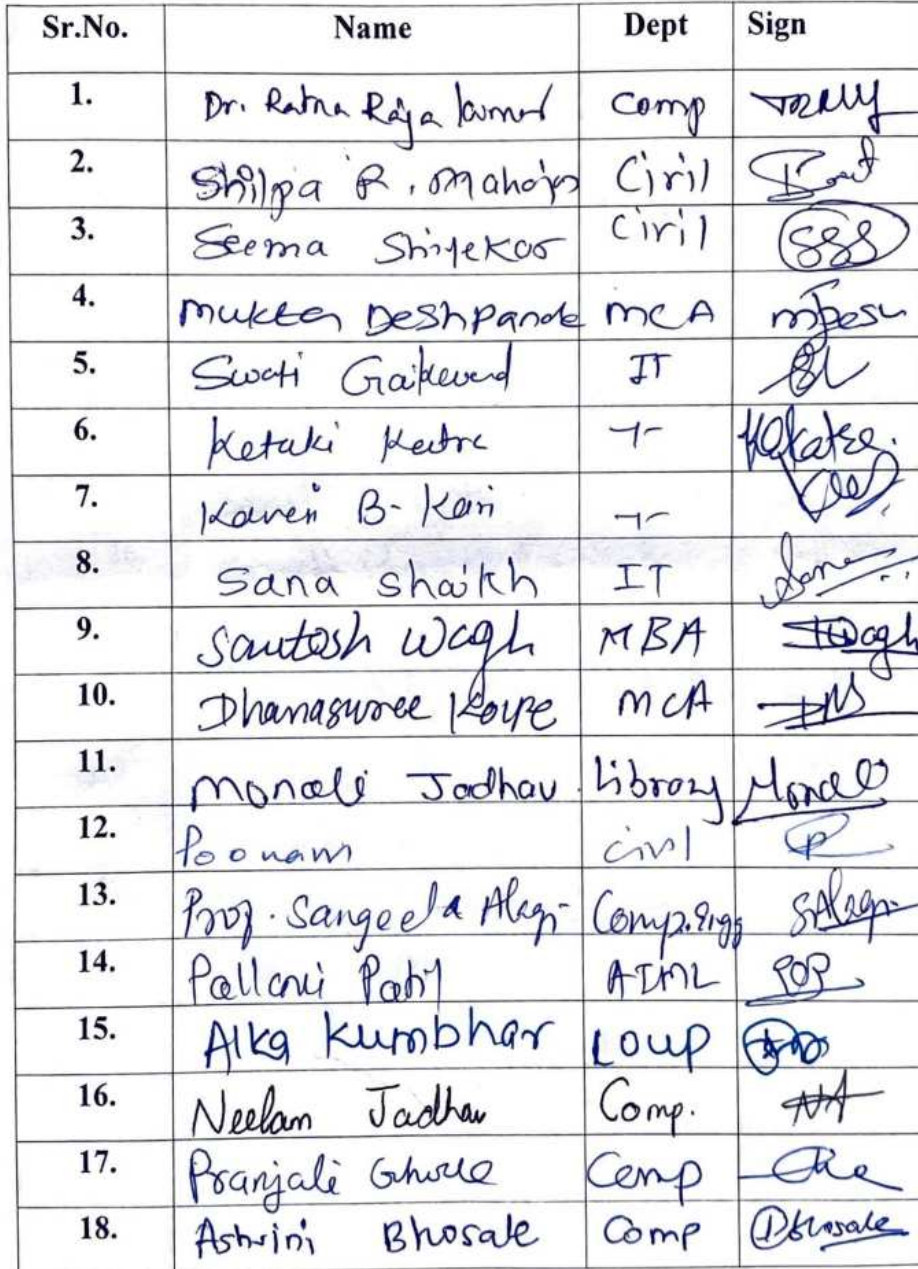 Sr.No. Name Dept Sign
1. Dr. Ratna Raja Kumar Comp
2. Shilpa R. Mahajan Civil
3. Seema Civil SSS
4. Mukta Deshpande MCA
5. Swati Gaikwad IT
6. Ketaki
7. Kaveri B-
8. Sana Shaikh IT Sana
9. Santosh Wagh MBA SWagh
10. Dhanashree MCA
11. Monali Jadhav. Library Monali
12. Poonam civil P
13. Prof. Sangeeta Comp.engg
14. Pallavi Patil AIML POP
15. Alka Kumbhar
16. Neelam Jadhav Comp. NA
17. Pranjali Comp
18. Ashwini Bhosale Comp Bhosale